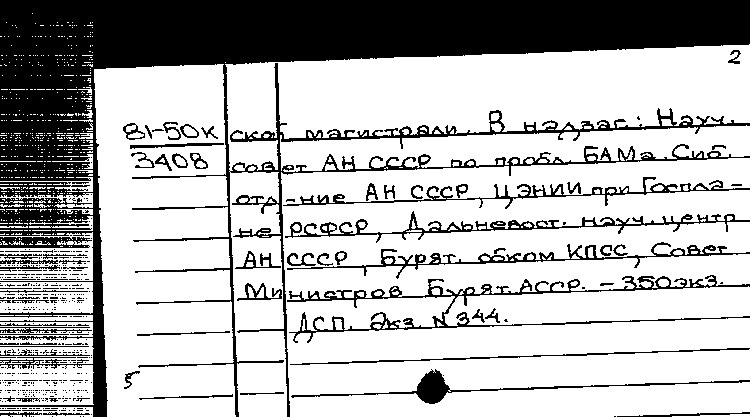 2
81-50к ской магистрали. В надзаг.: Науч.
3408 совет АН СССР по пробл. БАМа. Сиб.
отд-ние АН СССР, ЦЭНИИ при Госпла-
не РСФСР, Дальневост. науч. центр
АН СССР, Бурят. обком КПСС, Совет
Министров Бурят. АССР. - 350 экз.
ДСП. Экз. N 344.
5